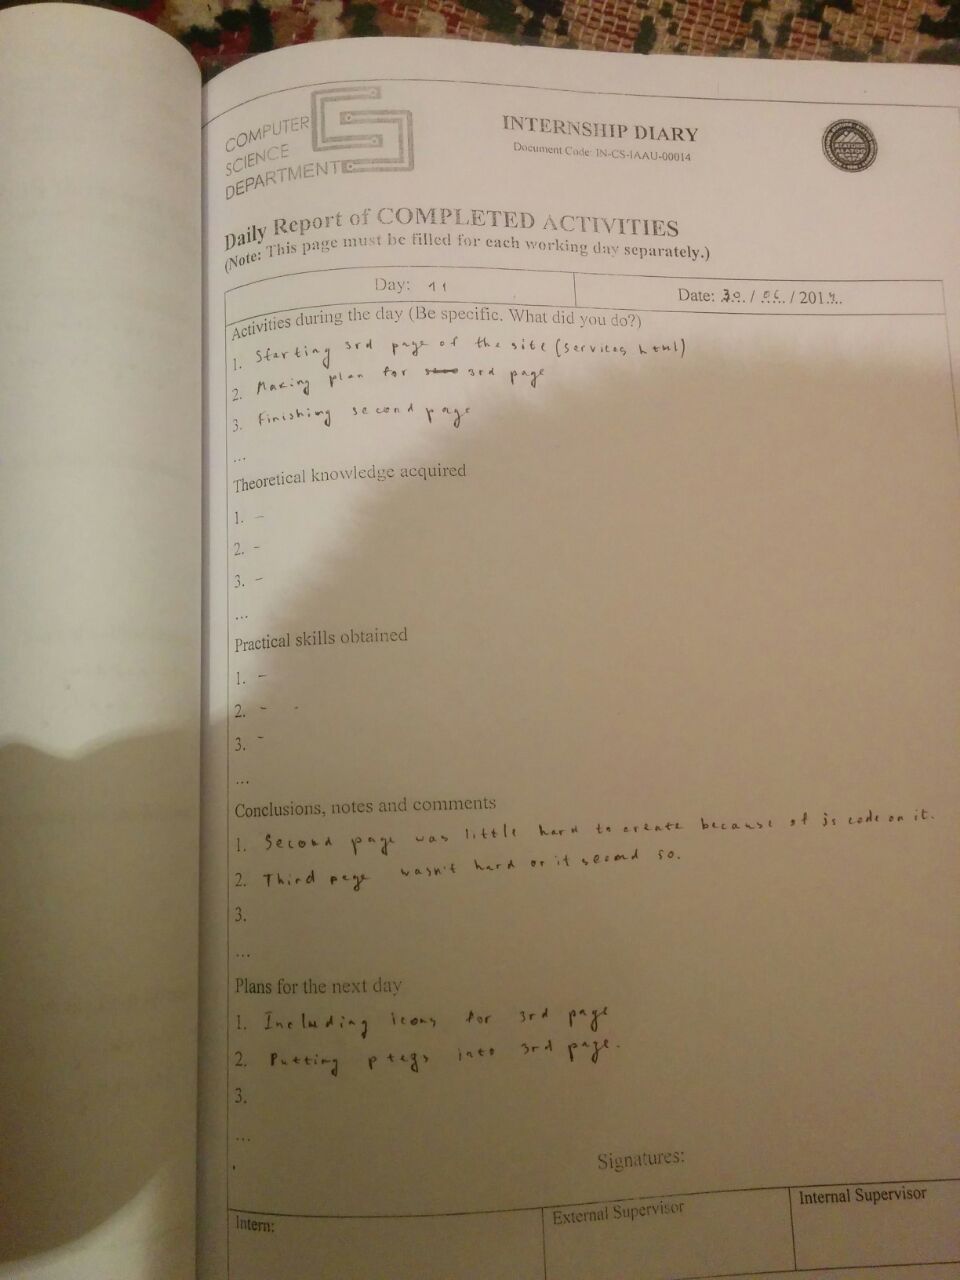 COMPUTER
SCIENCE
DEPARTMENT
INTERNSHIP DIARY
Document Code: IN-CS-IAAU-00014
Daily Report of COMPLETED ACTIVITIES
(Note: This page must be filled for each working day separately.)
Day: 11
Date: 30.. / 06.. / 2017..
Activities during the day (Be specific. What did you do?)
1. Starting 3rd page of the site (services html)
2. Making plan for 3rd page
3. Finishing second page
...
Theoretical knowledge acquired
1. –
2. –
3. –
...
Practical skills obtained
1. –
2. –
3. –
...
Conclusions, notes and comments
1. Second page was little hard to create because of js code on it.
2. Third page wasn't hard or it seemd so.
3.
...
Plans for the next day
1. Including icons for 3rd page
2. Putting p tegs into 3rd page.
3.
...
Signatures:
Intern:
External Supervisor
Internal Supervisor